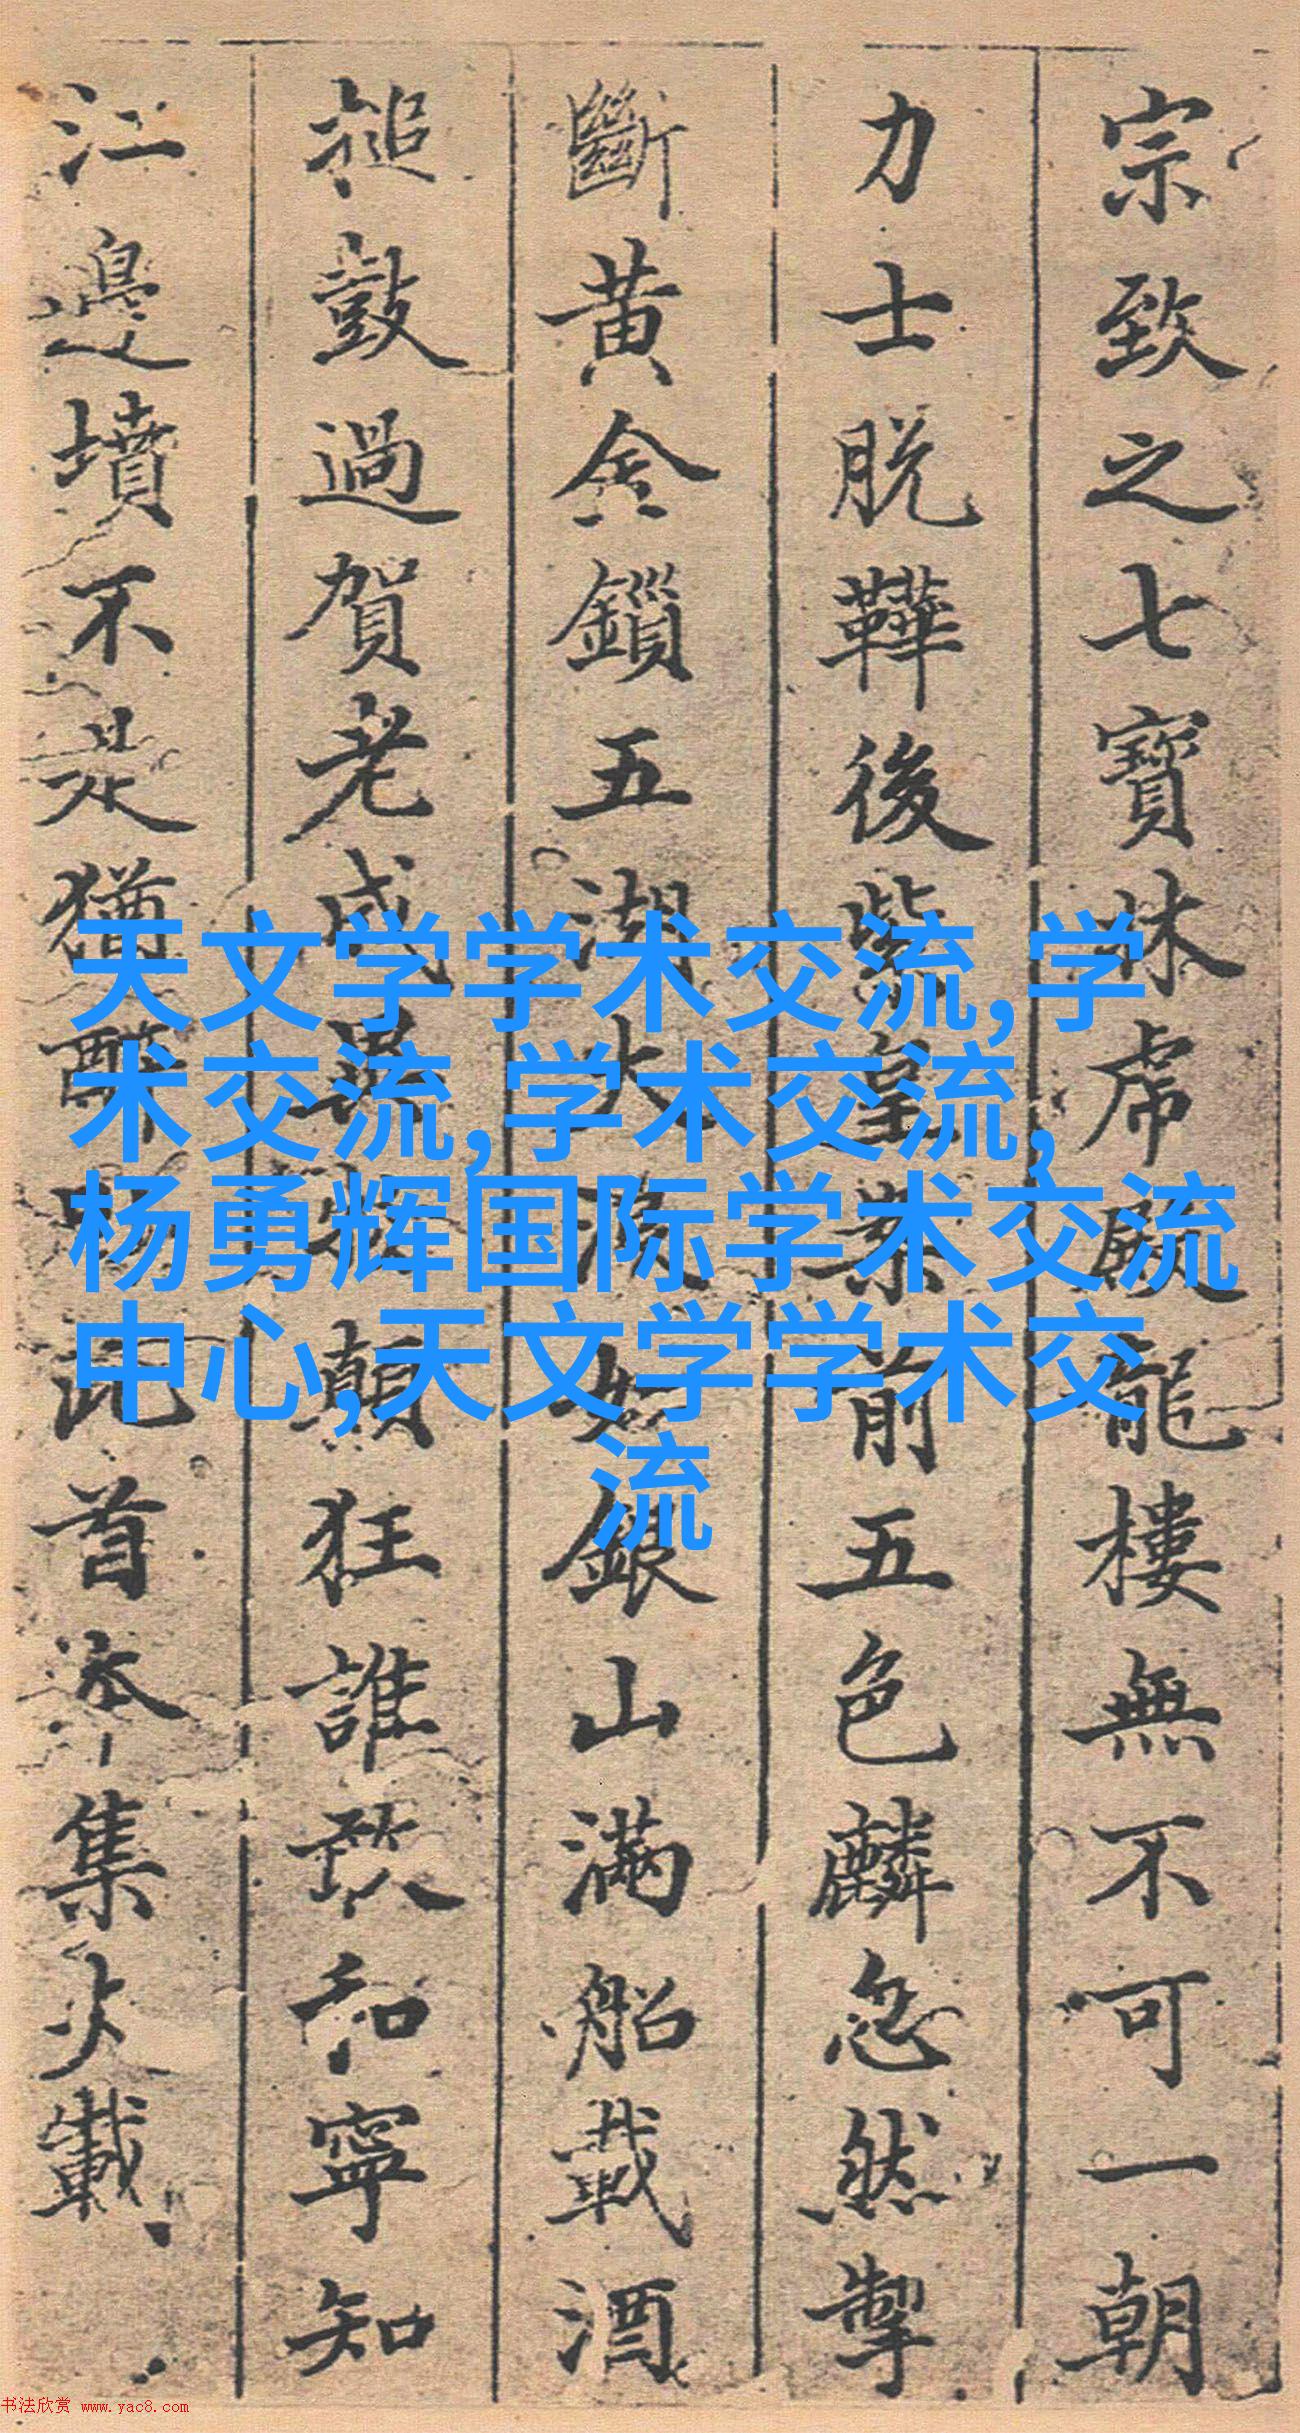 宗致之七寶牀虎殿龍樓無不可一朝
力士脫鞾後紫皇案前五色麟忽然掣
斷黃金鎖五湖大浪如銀山滿船載酒
搥鼓過賀老成異物顛狂誰敢和寧知
江邊墳不是猶醉卧此首本集載
天文学学术交流,学
术交流,学术交流,
杨勇辉国际学术交流
中心,天文学学术交
流
书法欣赏 www.yac8.com